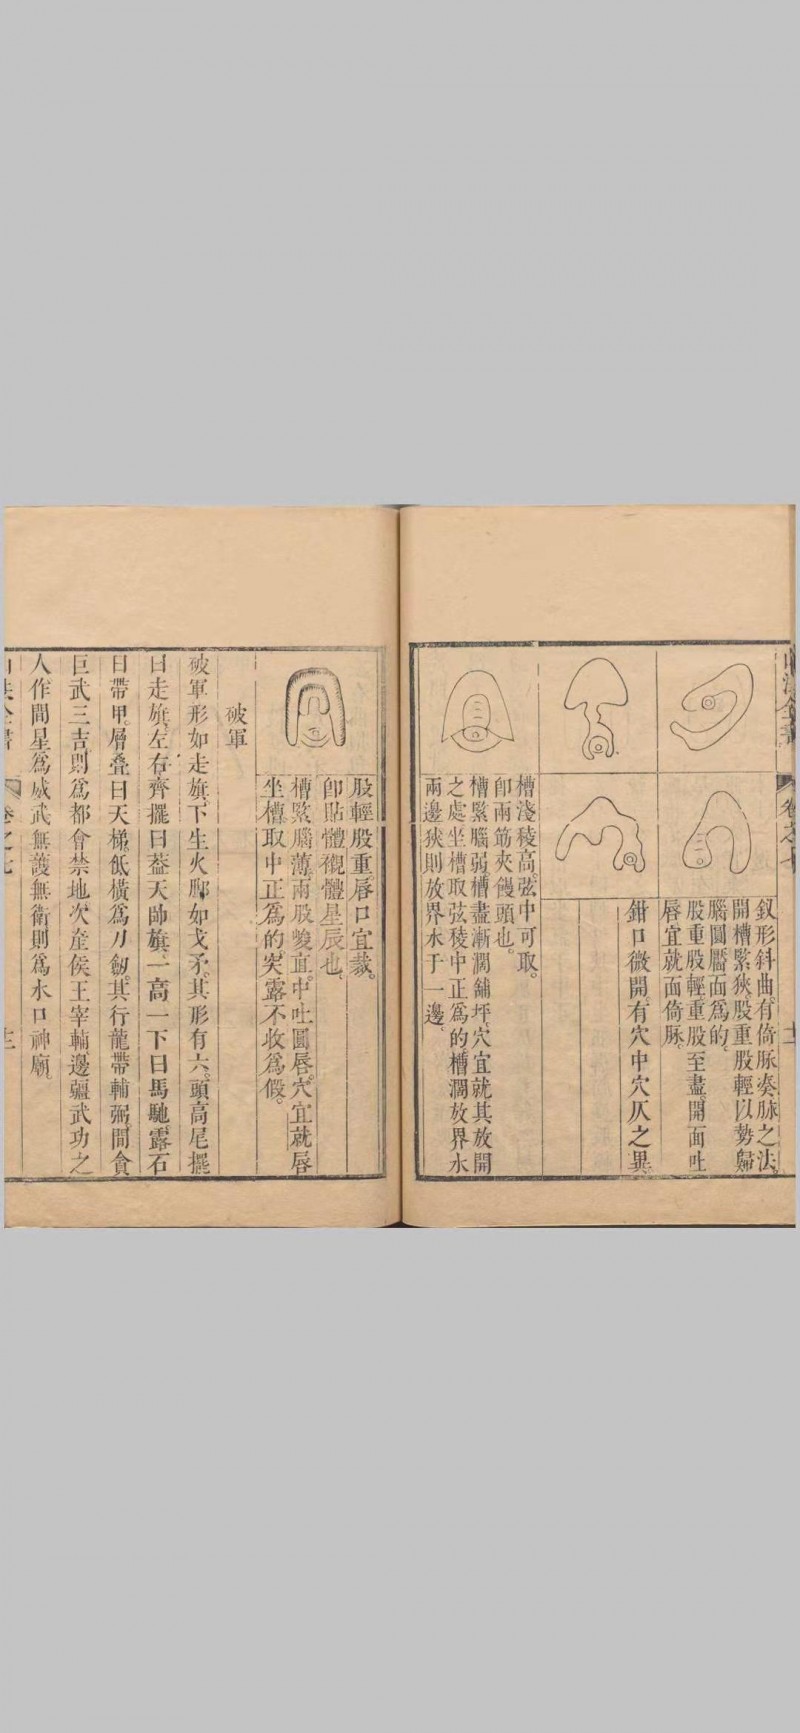 山法全書
卷之七
釵形斜曲。有倚脉湊脉之法。
開槽緊狹。股重股輕以勢歸
腦圓靨面為的。
股重股輕。重股至盡。開面吐
唇宜就面倚脉。
鉗口微開。有穴中穴仄之異。
槽淺稜高。弦中可取。
即兩筋夾饅頭也。
槽緊腦弱。槽盡漸濶鋪坪。穴宜就其放開
之處。坐槽取弦稜中正為的。槽濶放界水
兩邊。狹則放界水于一邊。
股輕股重。唇口宜裁。
即貼體襯體星辰也。
槽緊腦薄。兩股峻直。中吐圓唇。穴宜就唇
坐槽。取中正為的。突露不收為假。
破軍
破軍形如走旗。下生火脚如戈矛。其形有六。頭高尾擺
曰走旗。左右齊擺曰葢天帥旗。一高一下曰馬馳。露石
曰帶甲。層叠曰天梯。低橫為刀劒。其行龍帶輔弼。間貪
巨武三吉。則為都會禁地。次產侯王宰輔。邊疆武功之
人。作間星為威武。無護無衛則為水口神廟。
山法全書
卷之七